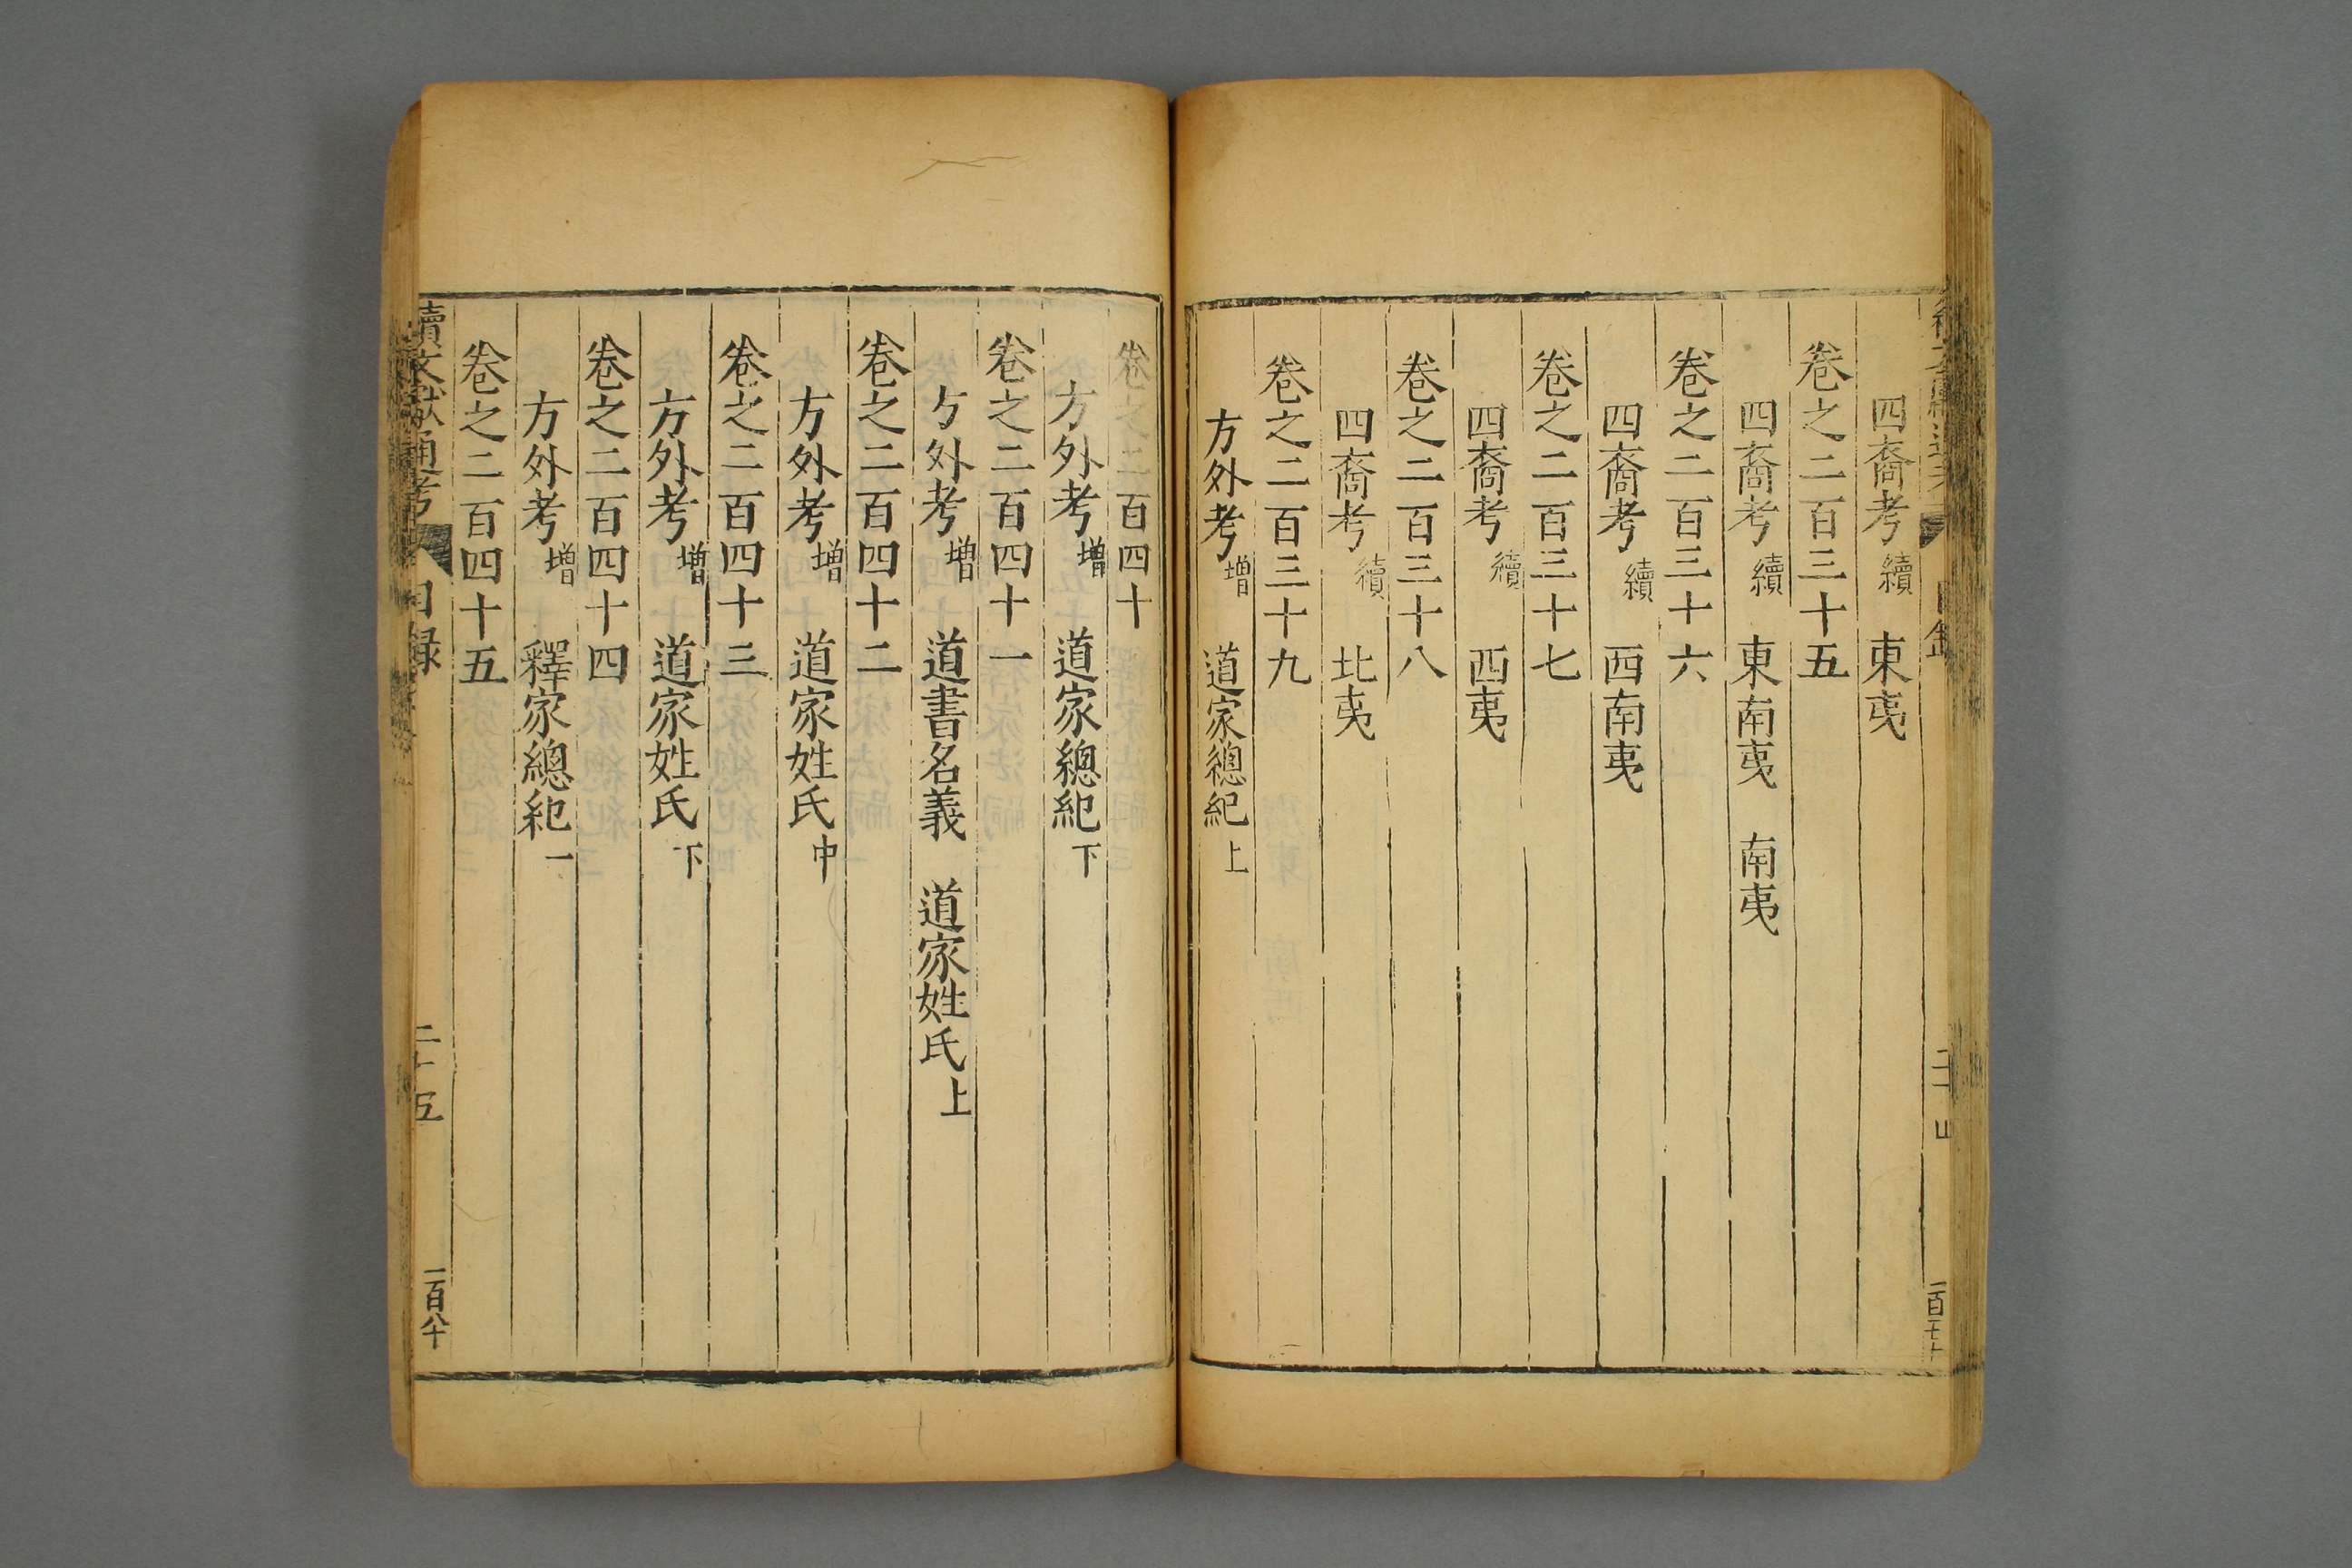 四裔考 續 東夷
卷之二百三十五
四裔考 續 東南夷 南夷
卷之二百三十六
四裔考 續 西南夷
卷之二百三十七
四裔考 續 西夷
卷之二百三十八
四裔考 續 北夷
卷之二百三十九
方外考 增 道家總紀 上
卷之二百四十
方外考 增 道家總紀 下
卷之二百四十一
方外考 增 道書名義 道家姓氏 上
卷之二百四十二
方外考 增 道家姓氏 中
卷之二百四十三
方外考 增 道家姓氏 下
卷之二百四十四
方外考 增 釋家總紀 一
卷之二百四十五
續文獻通考 目録 二十五 一百八十